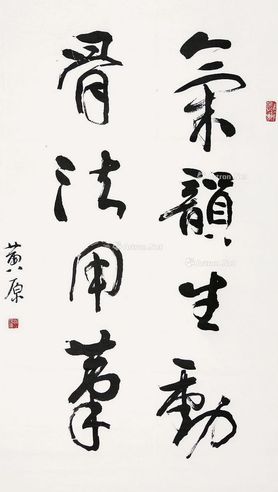 氣韻生動
骨法用筆
黃原